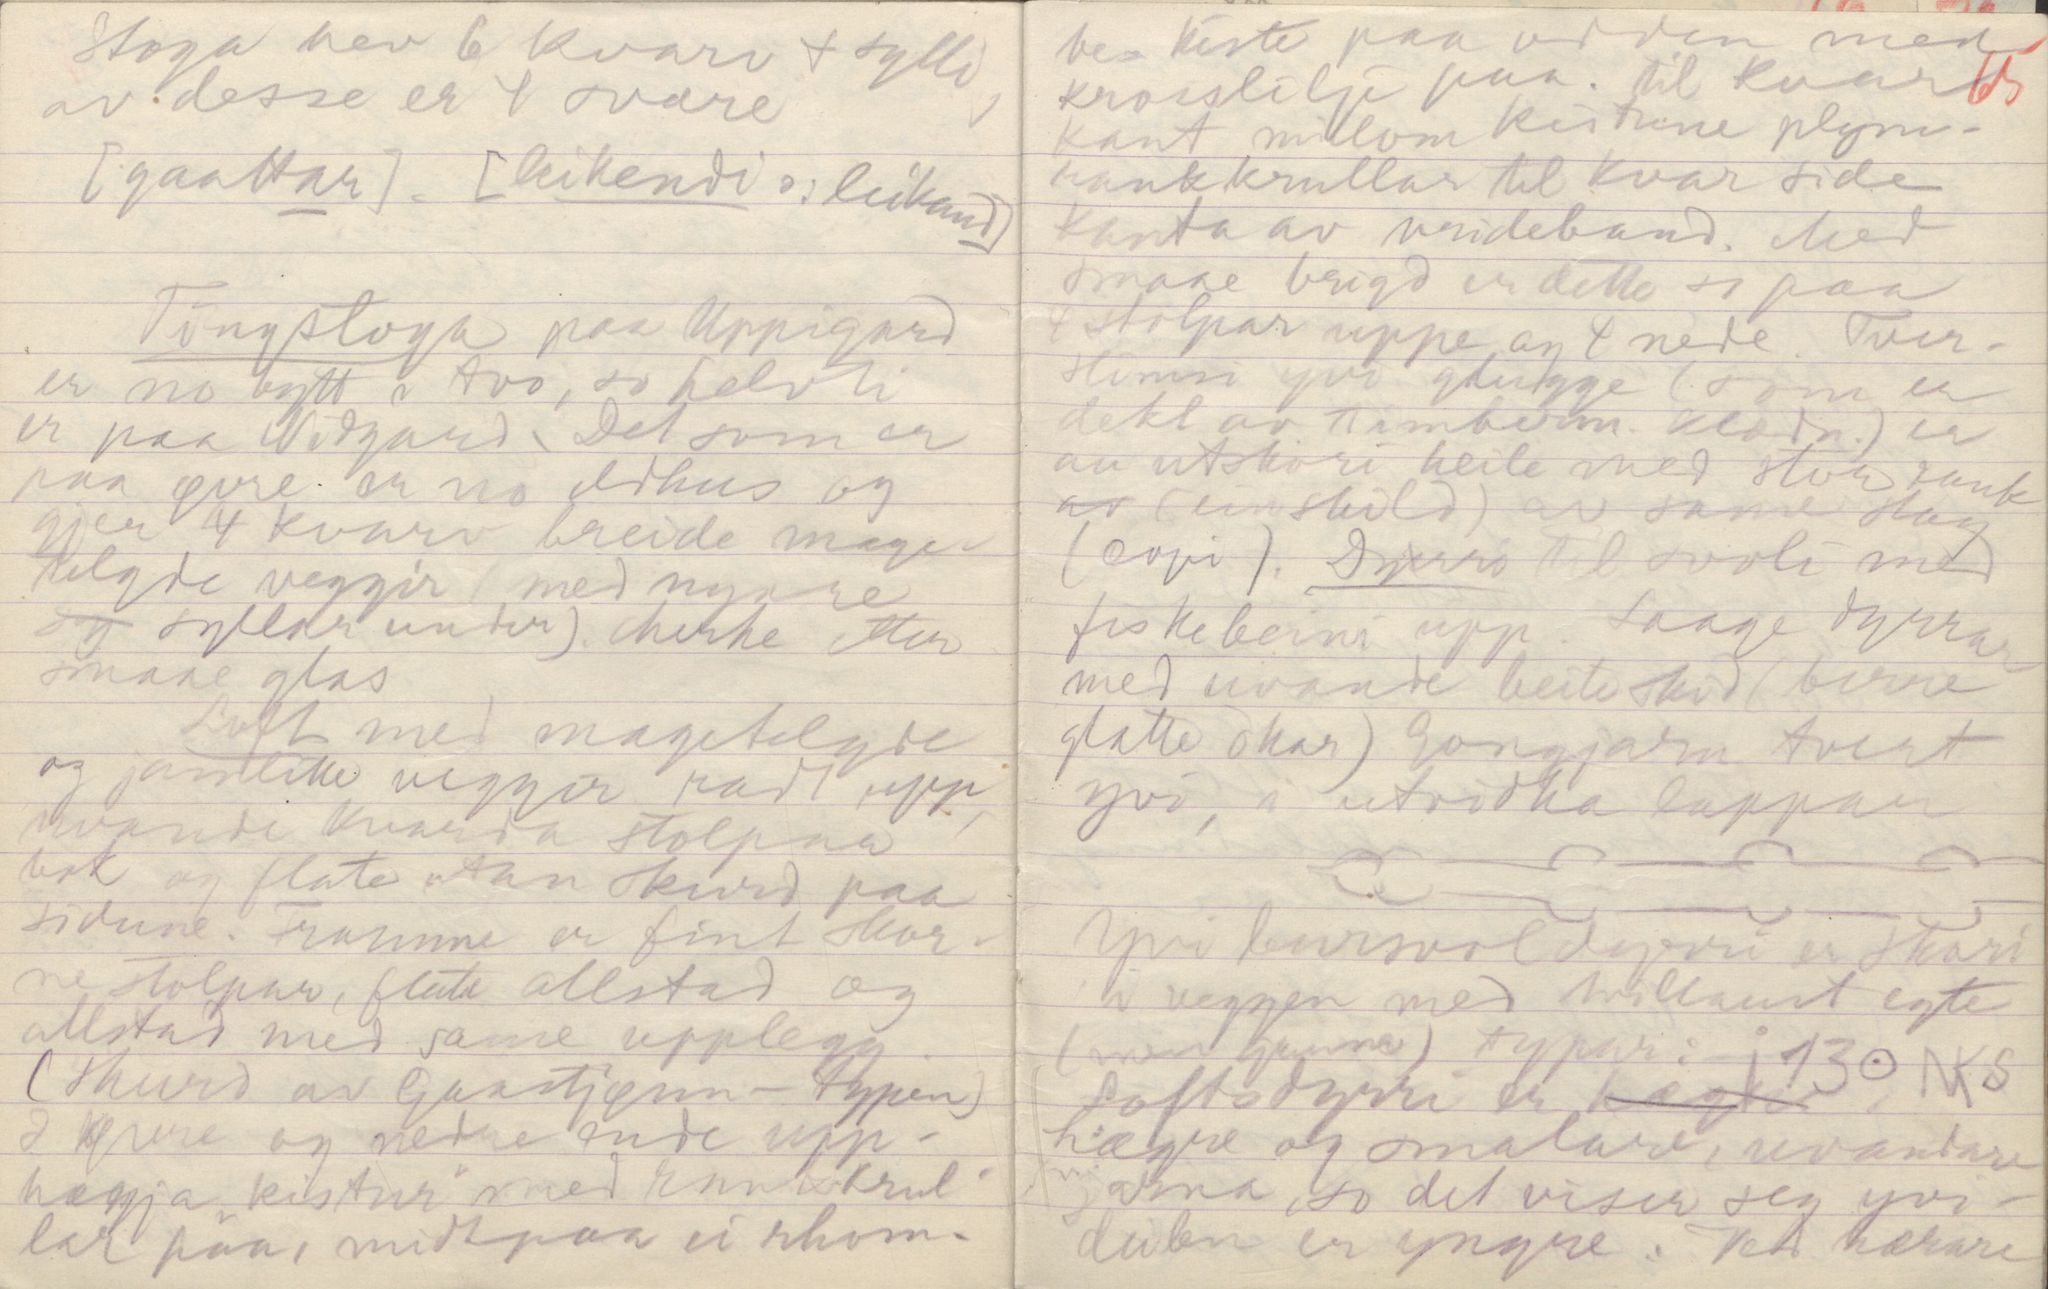 Stoga hev 6 kvarv + sylli,
av desse er 4 svære
[gaattar]. [leikendi ɔ: leikand]
Tingstoga paa Uppigard
er no bytt i tvo, so helvti
er paa Nidgard. Det som er
paa øvre er no eldhus og
gjer 4 kvarv breide mage-
telgde veggjir (med nyare
og syllar under). Merke etter
smaae glas
Loft med magetelgde
og jamtike veggjir radt upp,
uvande kvarda stolpar
bak og flate utan skurd paa
sidune. Framme er fint skor-
ne stolpar, flate allstad og
allstad med same upplegg
(skurd av Gaastjønn-typen)
I øvre og nedre ende upp-
høgja "kistur" med rankekrul-
lar paa, midt paa ei rhom-
be-kiste paa odden med
krosslilje paa. Til kvar 65
kant millom kistune
rankkrullar til kvar side
kanta av vrideband. Med
smaae brigd er dette so paa
4 stolpar uppe og 4 nede. Tver-
yvi glugge (som er
dekt av timberm. klædn.) er
au utskori heile med stor rank
av (einskild) av same slag
(copi). Dyrri til svoli med
fiskebeini upp. Laage dyrrar
med uvande beiteskid (berre
glatte okar) Gongjarn tvert
yvi, i utvidka lappar
Yvi bursvoldyrri er skori
i veggen med heilt egte
typar: 1730 NKS
Loftsdyrri er høgdi
høgre og smalare, uvandare
jarna, so det viser seg yvi-
deilen er yngre. Ved nærare